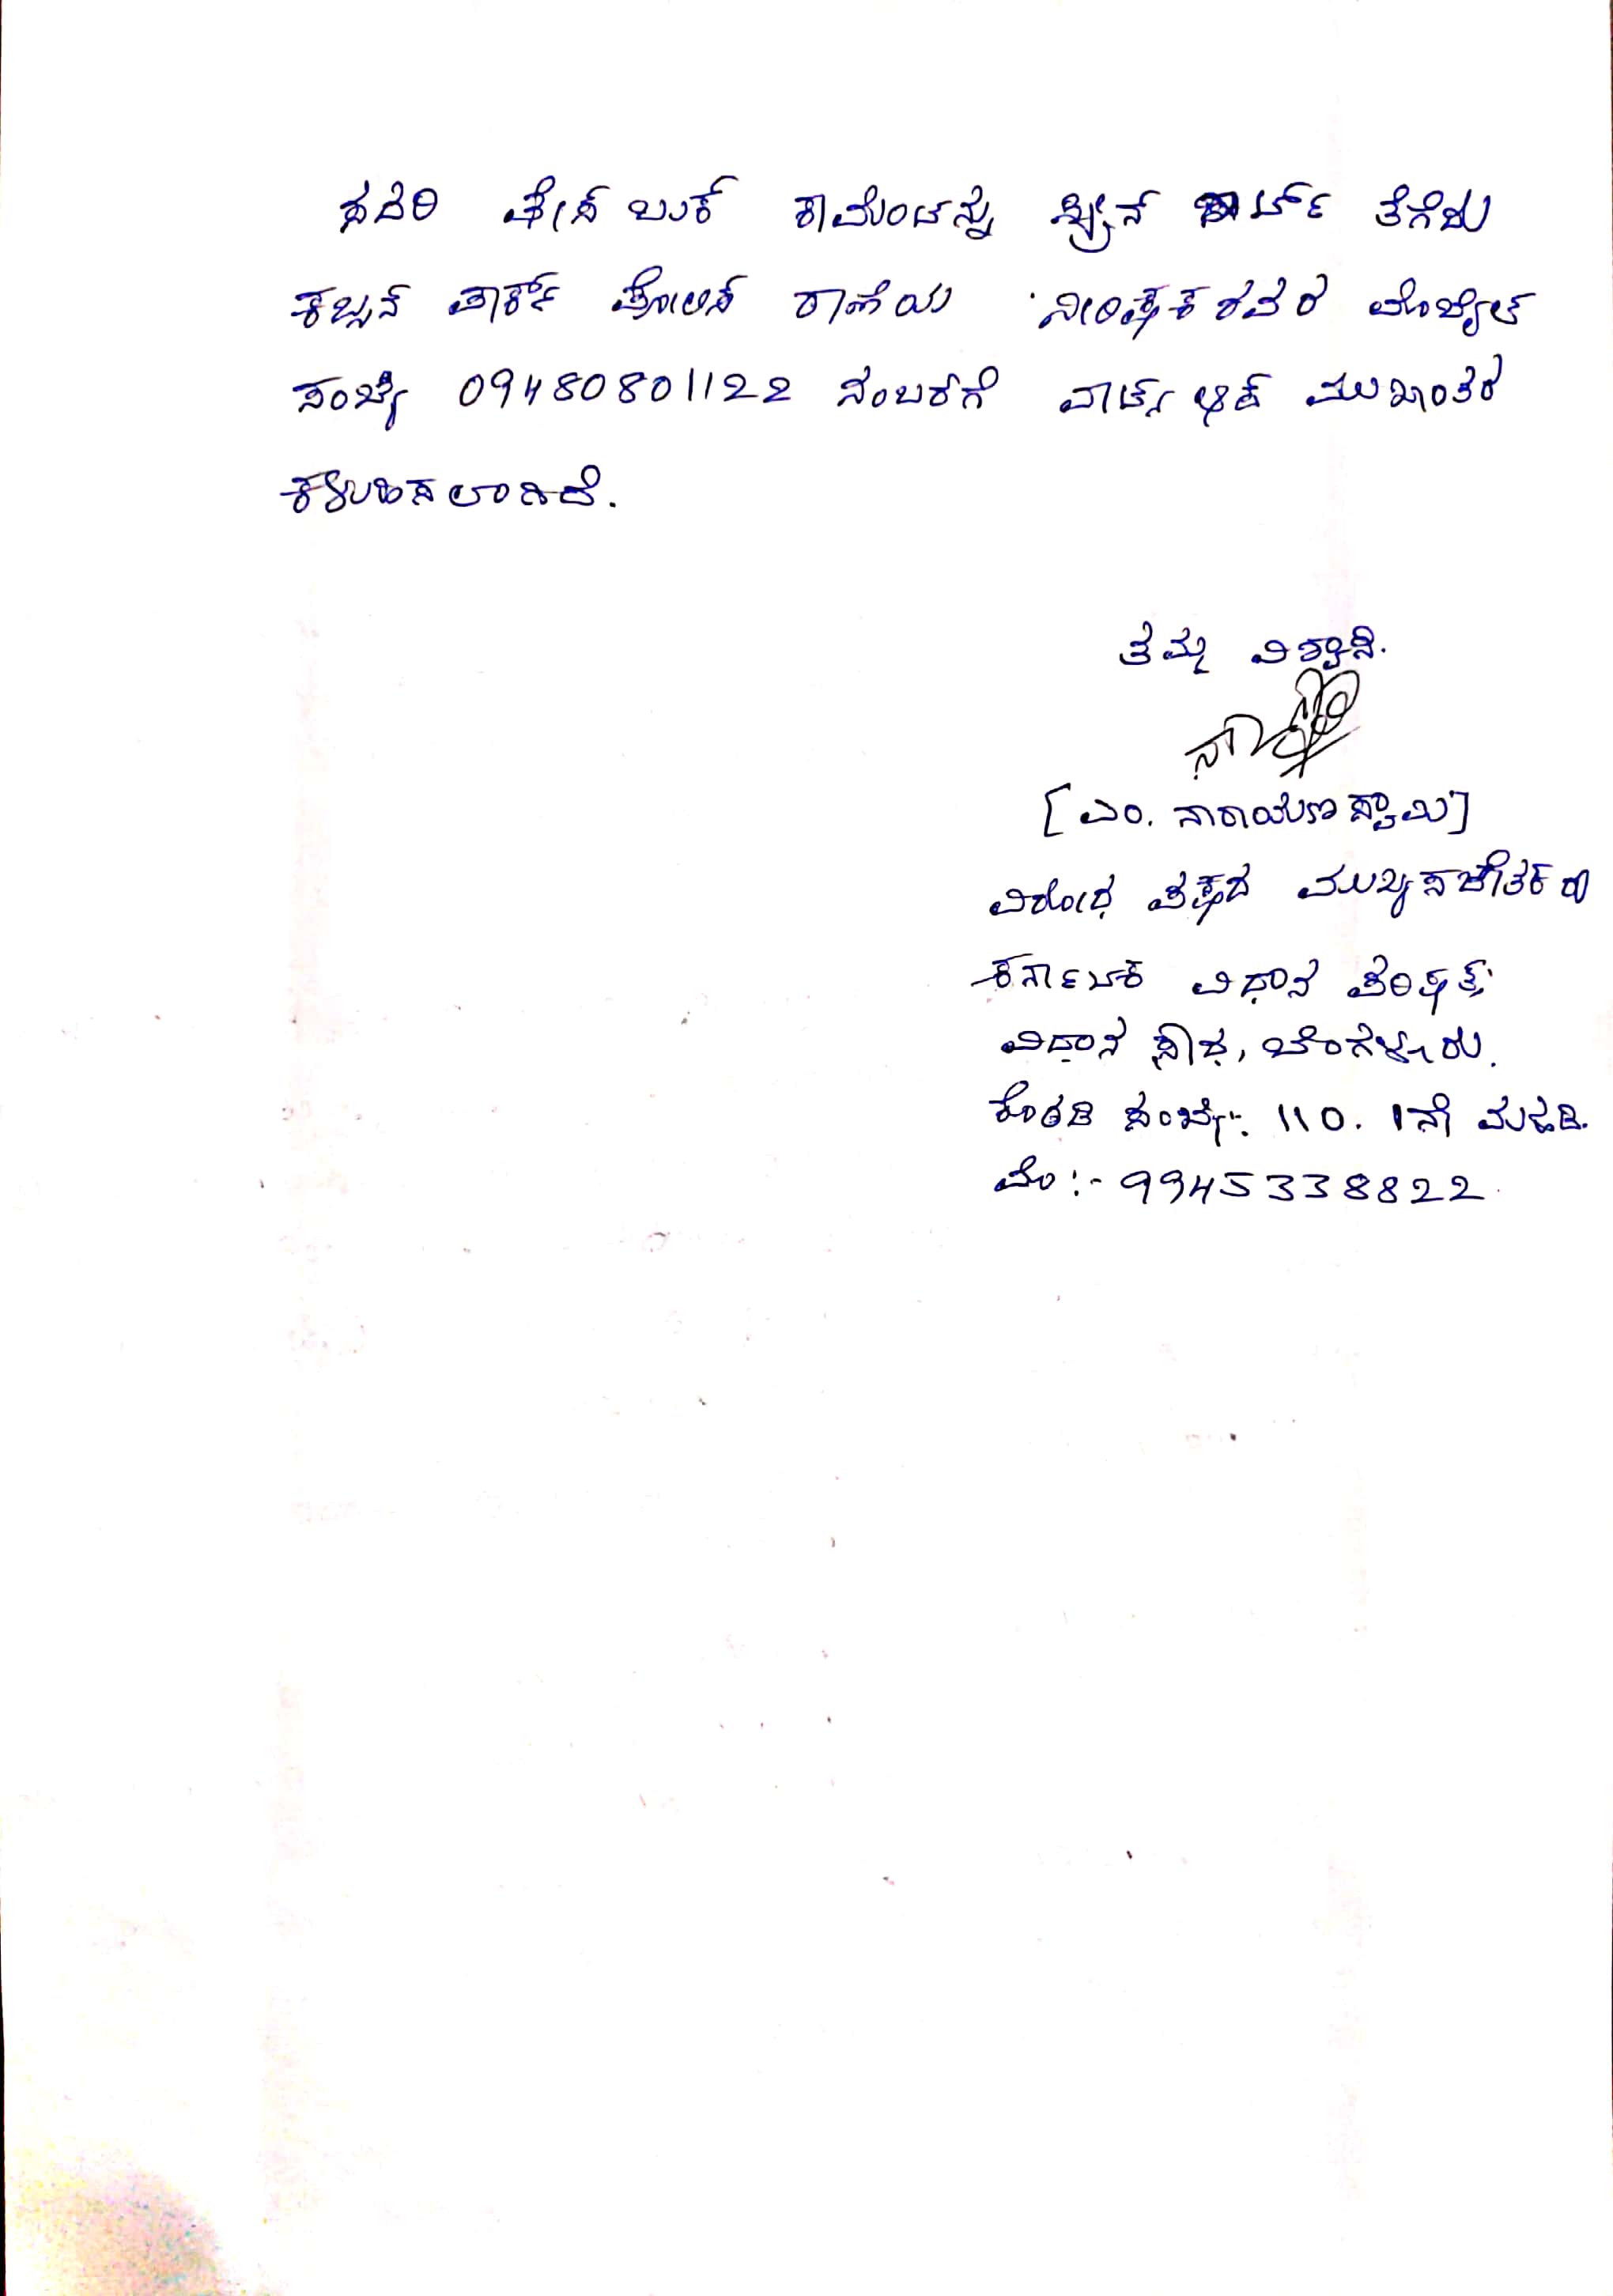 ಸದರಿ ಫೇಸ್ ಬುಕ್ ಕಾಮೆಂಟನ್ನು ಸ್ಕ್ರೀನ್ ಶಾರ್ಟ್ ತೆಗೆದು
ಕಬ್ಬನ್ ಪಾರ್ಕ್ ಪೋಲಿಸ್ ಠಾಣೆಯ ನೀರಿಕ್ಷಕರವರ ಮೊಬೈಲ್
ಸಂಖ್ಯೆ 09480801122 ನಂಬರ್‌ಗೆ ವಾಟ್ಸ್ ಆಪ್ ಮುಖಾಂತರ
ಕಳುಹಿಸಲಾಗಿದೆ.
ತಮ್ಮ ವಿಶ್ವಾಸಿ.
[ಎಂ. ನಾರಾಯಣಸ್ವಾಮಿ]
ವಿರೋಧ ಪಕ್ಷದ ಮುಖ್ಯಸಚೇತಕರು
ಕರ್ನಾಟಕ ವಿಧಾನ ಪರಿಷತ್ತು
ವಿಧಾನ ಸೌಧ, ಬೆಂಗಳೂರು.
ಕೊಠಡಿ ಸಂಖ್ಯೆ:. 110. 1ನೇ ಮಹಡಿ.
ಮೊ:- 9945338822